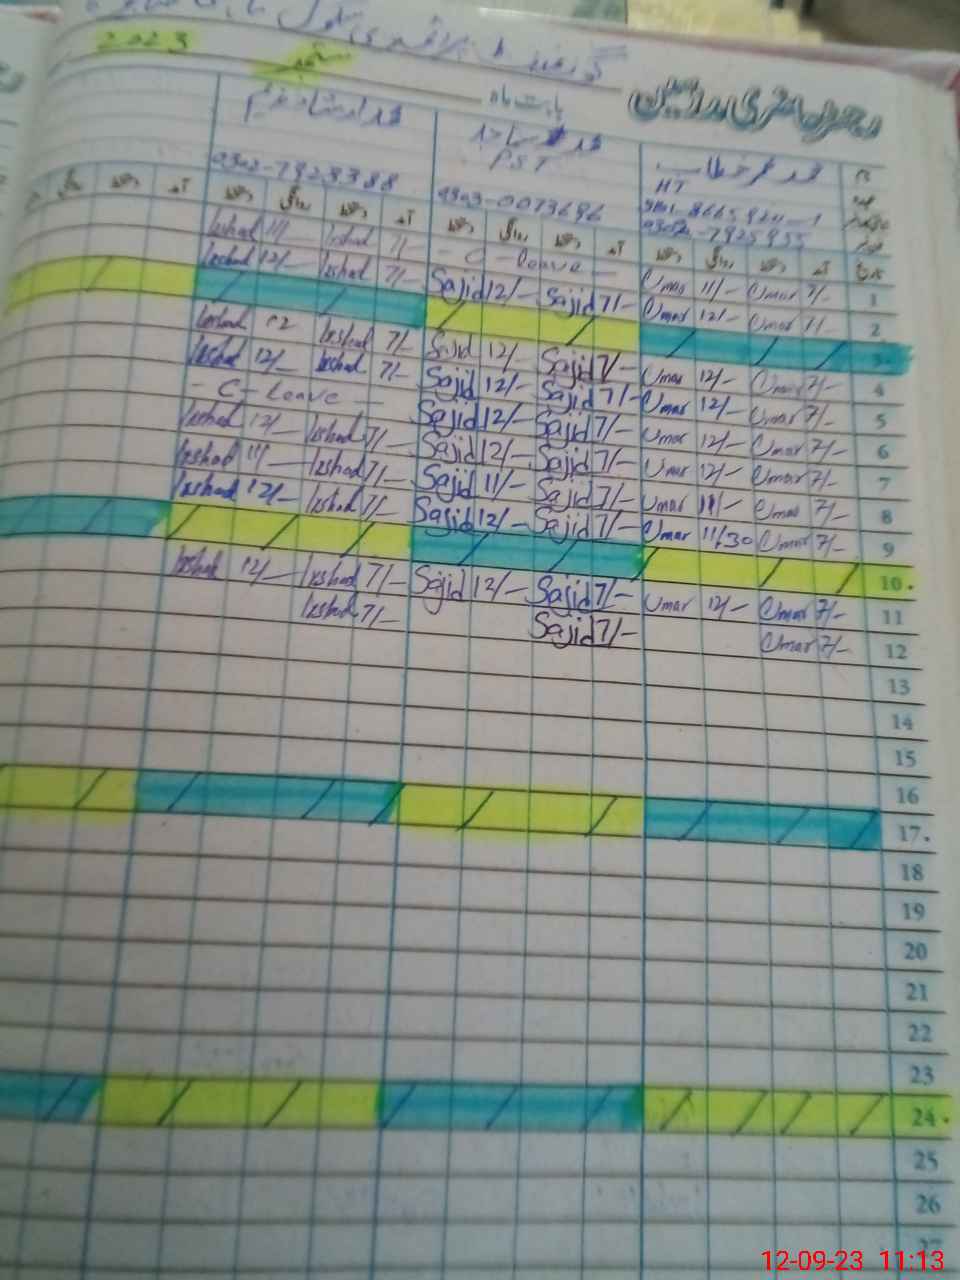 2023
ستمبر
بابت ماہ
رجسٹر حاضری مدرسین
محمد ارشاد
محمد ساجد
محمد عمر خطاب
PST
HT
0302-7923388
0303-0073696
آمد دستخط روانگی دستخط آمد دستخط روانگی دستخط آمد دستخط روانگی دستخط
Irshad 11/- Irshad 7/- - C - leave - Umar 11/- Umar 7/- 1
Irshad 12/- Irshad 7/- Sajid 12/- Sajid 7/- Umar 12/- Umar 7/- 2
3.
Irshad 12 Irshad 7/- Sajid 12/- Sajid 7/- Umar 12/- Umar 7/- 4
Irshad 12/- Irshad 7/- Sajid 12/- Sajid 7/- Umar 12/- Umar 7/- 5
- C - Leave - Sajid 12/- Sajid 7/- Umar 12/- Umar 7/- 6
Irshad 12/- Irshad 7/- Sajid 12/- Sajid 7/- Umar 12/- Umar 7/- 7
Irshad 11/- Irshad 7/- Sajid 11/- Sajid 7/- Umar 11/- Umar 7/- 8
Irshad 12/- Irshad 7/- Sajid 12/- Sajid 7/- Umar 11/30 Umar 7/- 9
10.
Irshad 12/- Irshad 7/- Sajid 12/- Sajid 7/- Umar 12/- Umar 7/- 11
Irshad 7/- Sajid 7/- Umar 7/- 12
13
14
15
16
17.
18
19
20
21
22
23
24.
25
26
27
12-09-23 11:13